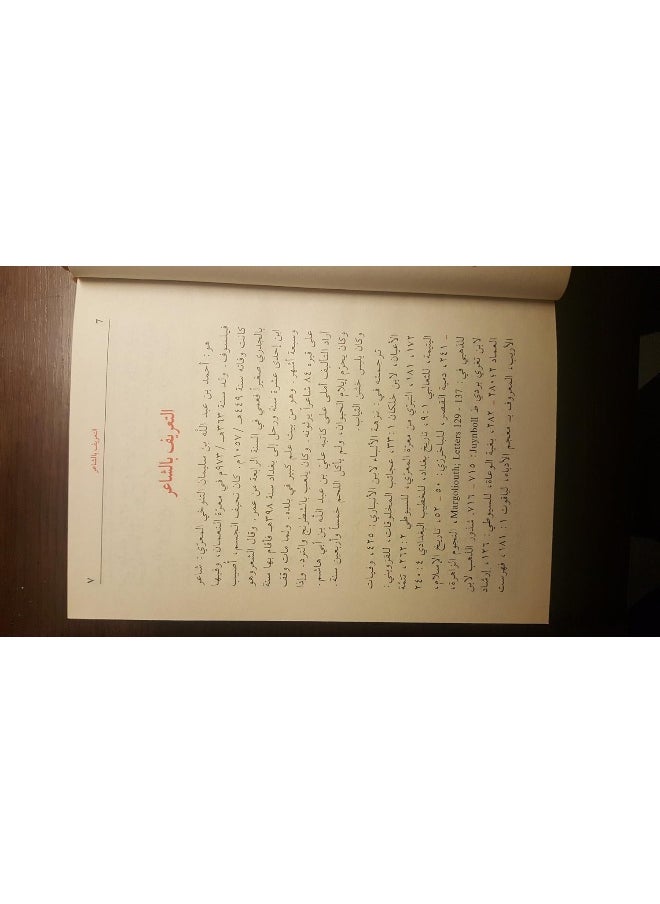 التعريف بالشاعر
٧
التعريف بالشاعر
هو: أحمد بن عبد الله بن سليمان التنوخي المعري: شاعر
فيلسوف. ولد سنة ٣٦٣هـ/٩٧٣م في معرة النعمان، وفيها
كانت وفاته سنة ٤٤٩هـ/١٠٥٧م. كان نحيف الجسم، أصيب
بالجدري صغيراً فعمي في السنة الرابعة من عمره. وقال الشعر وهو
ابن إحدى عشرة سنة ورحل إلى بغداد سنة ٣٩٨هـ فأقام بها سنة
وسبعة أشهر. وهو من بيت علم كبير في بلده. ولما مات وقف
على قبره ٨٤ شاعراً يرثونه. وكان يلعب بالشطرنج والنرد. وإذا
أراد التأليف أملى على كاتبه علي بن عبد الله بن أبي هاشم.
وكان يحرّم إيلام الحيوان، ولم يأكل اللحم خمساً وأربعين سنة.
وكان يلبس خشن الثياب.
ترجمته في: نزهة الألباء لابن الأنباري: ٤٢٥، وفيات
الأعيان، لابن خلكان ١: ٣٣، عجائب المخلوقات، للقزويني:
١٧٢، ١٨١، التبرّي من معرة المعرّي، للسيوطي ٢: ٢٦٢، تتمّة
اليتيمة، للثعالبي ١: ٩، تاريخ بغداد، للخطيب البغدادي ٤: ٢٤٠
- ٢٤١، دمية القصر، للباخرزي: ٥٠ - ٥٢، تاريخ الإسلام،
للذهبي في: Margoliouth; Letters 129 - 137، النجوم الزاهرة،
لابن تغري بردي ط Juynboll: ٧١٥ - ٧١٦، شذور الذهب لابن
العماد ٣: ٢٨٠ - ٢٨٢، بغية الوعاة، للسيوطي: ١٣٦، إرشاد
الأريب، المعروف بـ معجم الأدباء، لياقوت ١: ١٨١، فهرست